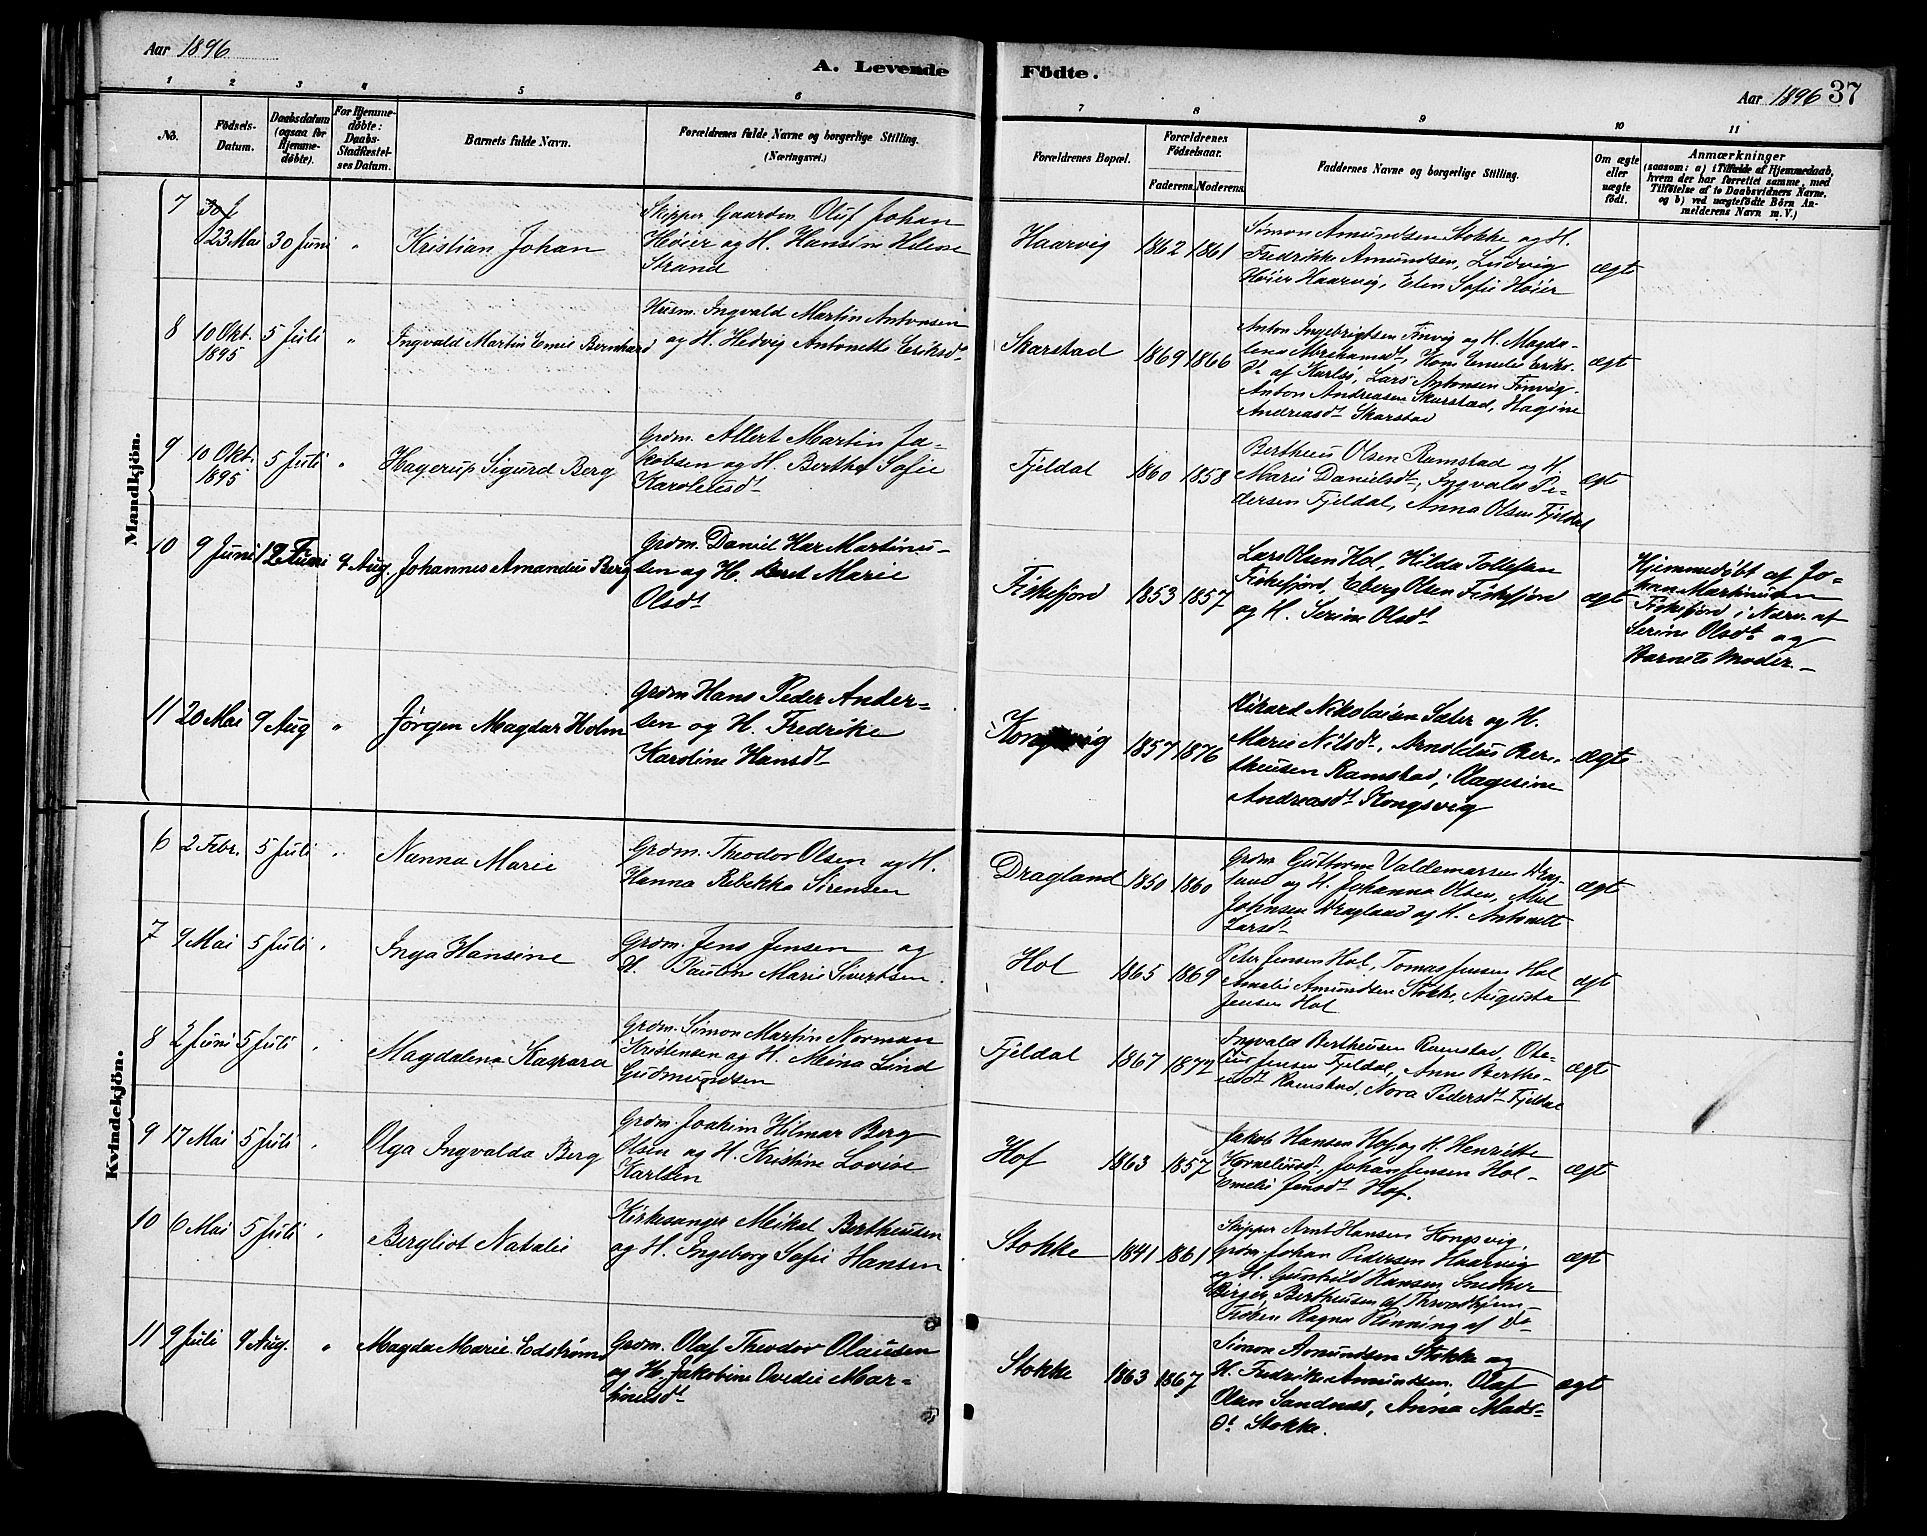 Aar 1896
A. Levende
Fødte.
Aar 1896 37
1 2 3 4 5 6 7 8 9 10 11
No.
Födsels-
Datum.
Daabsdatum
(ogsaa for
Hjemme-
døbte).
For Hjemme-
døbte:
Daabs-
Stadfæstel-
ses Datum.
Barnets fulde Navn.
Forældrenes fulde Navne og borgerlige Stilling.
(Næringsvei.)
Forældrenes Bopæl.
Forældrenes
Födselsaar.
Faderens. Moderens.
Faddernes Navne og borgerlige Stilling.
Om ægte
eller
uægte
født.
Anmærkninger
(saasom: a) i Tilfælde af Hjemmedaab,
hvem der har forrettet samme, med
Tilføielse af to Daabsvidners Navne,
og b) ved uægtefødte Börn An-
melderens Navn m. V.)
Mandkjön.
7
23. Mai
30 Juni
"
Kristian Johan
Skipper Gaardm. Oluf Johan
Høier og H. Hansine Helene
Strand
Haarvig
1862 1861
Simon Amundsen Stokke og H.
Fredrikke Amundsen, Ludvig
Høier Haarvig, Elen Sofie Høier
ægt
8
10 Okt.
1895
5 Juli
"
Ingvald Martin Emil Bernhard
Husm. Ingvald Martin Antonsen
og H. Hedvig Antonette Eriksdt
Skarstad
1869 1866
Anton Ingebrigtsen Finvig og H. Magda-
lena Abrahamsdt, Kone Emelie Eriks-
dt af Karlsö, Lars Antonsen Finvig,
Anton Andreasen Skarstad, Hagine
Andreasdt Skarstad
ægt
9
10 Okt.
1895
5 Juli
"
Hagerup Sigurd Berg
Grdm. Allert Martin Ja-
kobsen og H. Berthe Sofie
Karoliusdt
Fjeldal
1860 1858
Bertheus Olsen Ramstad og H.
Marie Danielsdt, Ingvald Pe-
dersen Fjeldal, Anna Olsen Fjeldal
ægt
10
9 Juni
12 Juni
9 Aug.
Johannes Amandus Berg
Grdm. Daniel Har Martinu-
sen og H. Beret Marie
Olsdt
Fiskefjord
1853 1857
Lars Olsen Hol, Hilda Tollefsen
Fiskefjord, Eberg Olsen Fiskefjord
og H. Serine Olsdt
ægt
Hjemmedøbt af Jo-
han Martinusen
Fiskefjord i Nærv. af
Serine Olsdt og
Barnets Moder.
11
20 Mai
9 Aug
"
Jörgen Magdar Holm
Grdm Hans Peder Ander-
sen og H. Fredrike
Karoline Hansdt
Kongsvig
1857 1876
Rikart Nikolaisen Sæter og H.
Marie Nilsdt, Arnoldus Ber-
theusen Ramstad, Olagesine
Andreasdt Kongsvig
ægte
Kvindekjön.
6
2 Febr.
5 Juli
"
Nanna Marie
Grdm. Theodor Olsen og H.
Hanna Rebekka Sörensen
Dragland
1850 1860
Grdm Guttorm Valdemarsen Drag-
land og H. Johanna Olsen, Abel
Johnsen Dragland og H. Antonette
Larsdt
ægt
7
9 Mai
5 Juli
"
Inga Hansine
Grdm. Jens Jensen og
H. Pauline Marie Sivertsen.
Hol
1865 1869
Peter Jensen Hol, Tomas Jensen Hol
Amalie Amundsen Stokke, Augusta
Jensen Hol
ægt
8
2 Juni
5 Juli
"
Magdalena Kaspara
Grdm. Simon Martin Norman
Kristensen og H. Meina Lind
Gudmundsen
Fjeldal
1867 1872
Ingvald Bertheusen Ramstad, Ote-
lius Jensen Fjeldal, Anne Berthe-
usdt Ramstad, Nora Pedersdt Fjeldal
ægt
9
17 Mai
5 Juli
"
Olga Ingvalda Berg
Grdm. Joakim Hilmar Berg
Olsen og H. Kristine Lovise
Karlsen
Hof
1863 1857
Jakob Hansen Hof og H. Henritte
Korneliusdt, Johan Jensen Hol
Emelie Jensdt Hof.
ægt
10
6 Mai
5 Juli
"
Bergliot Natalie
Kirkesanger Meikal Bertheusen
og H. Ingeborg Sofie Hansen
Stokke
1841 1861
Skipper Arnt Hansen Kongsvig,
Grdm Johan Pedersen Haarvig
og H. Gunhild Hansen, Snedker
Birger Bertheusen af Throndhjem
Frøken Ragna Rönning af Do
ægt
11
9 Juli
9 Aug.
"
Magda Marie Edströms
Grdm. Olaf Theodor Olausen
og H. Jakobine Ovedie Mar-
tinusdt
Stokke
1863 1867
Simon Amundsen Stokke og
H. Fredrike Amundsen. Olaf
Olsen Sandnes, Anna Mads-
dt Stokke.
ægt